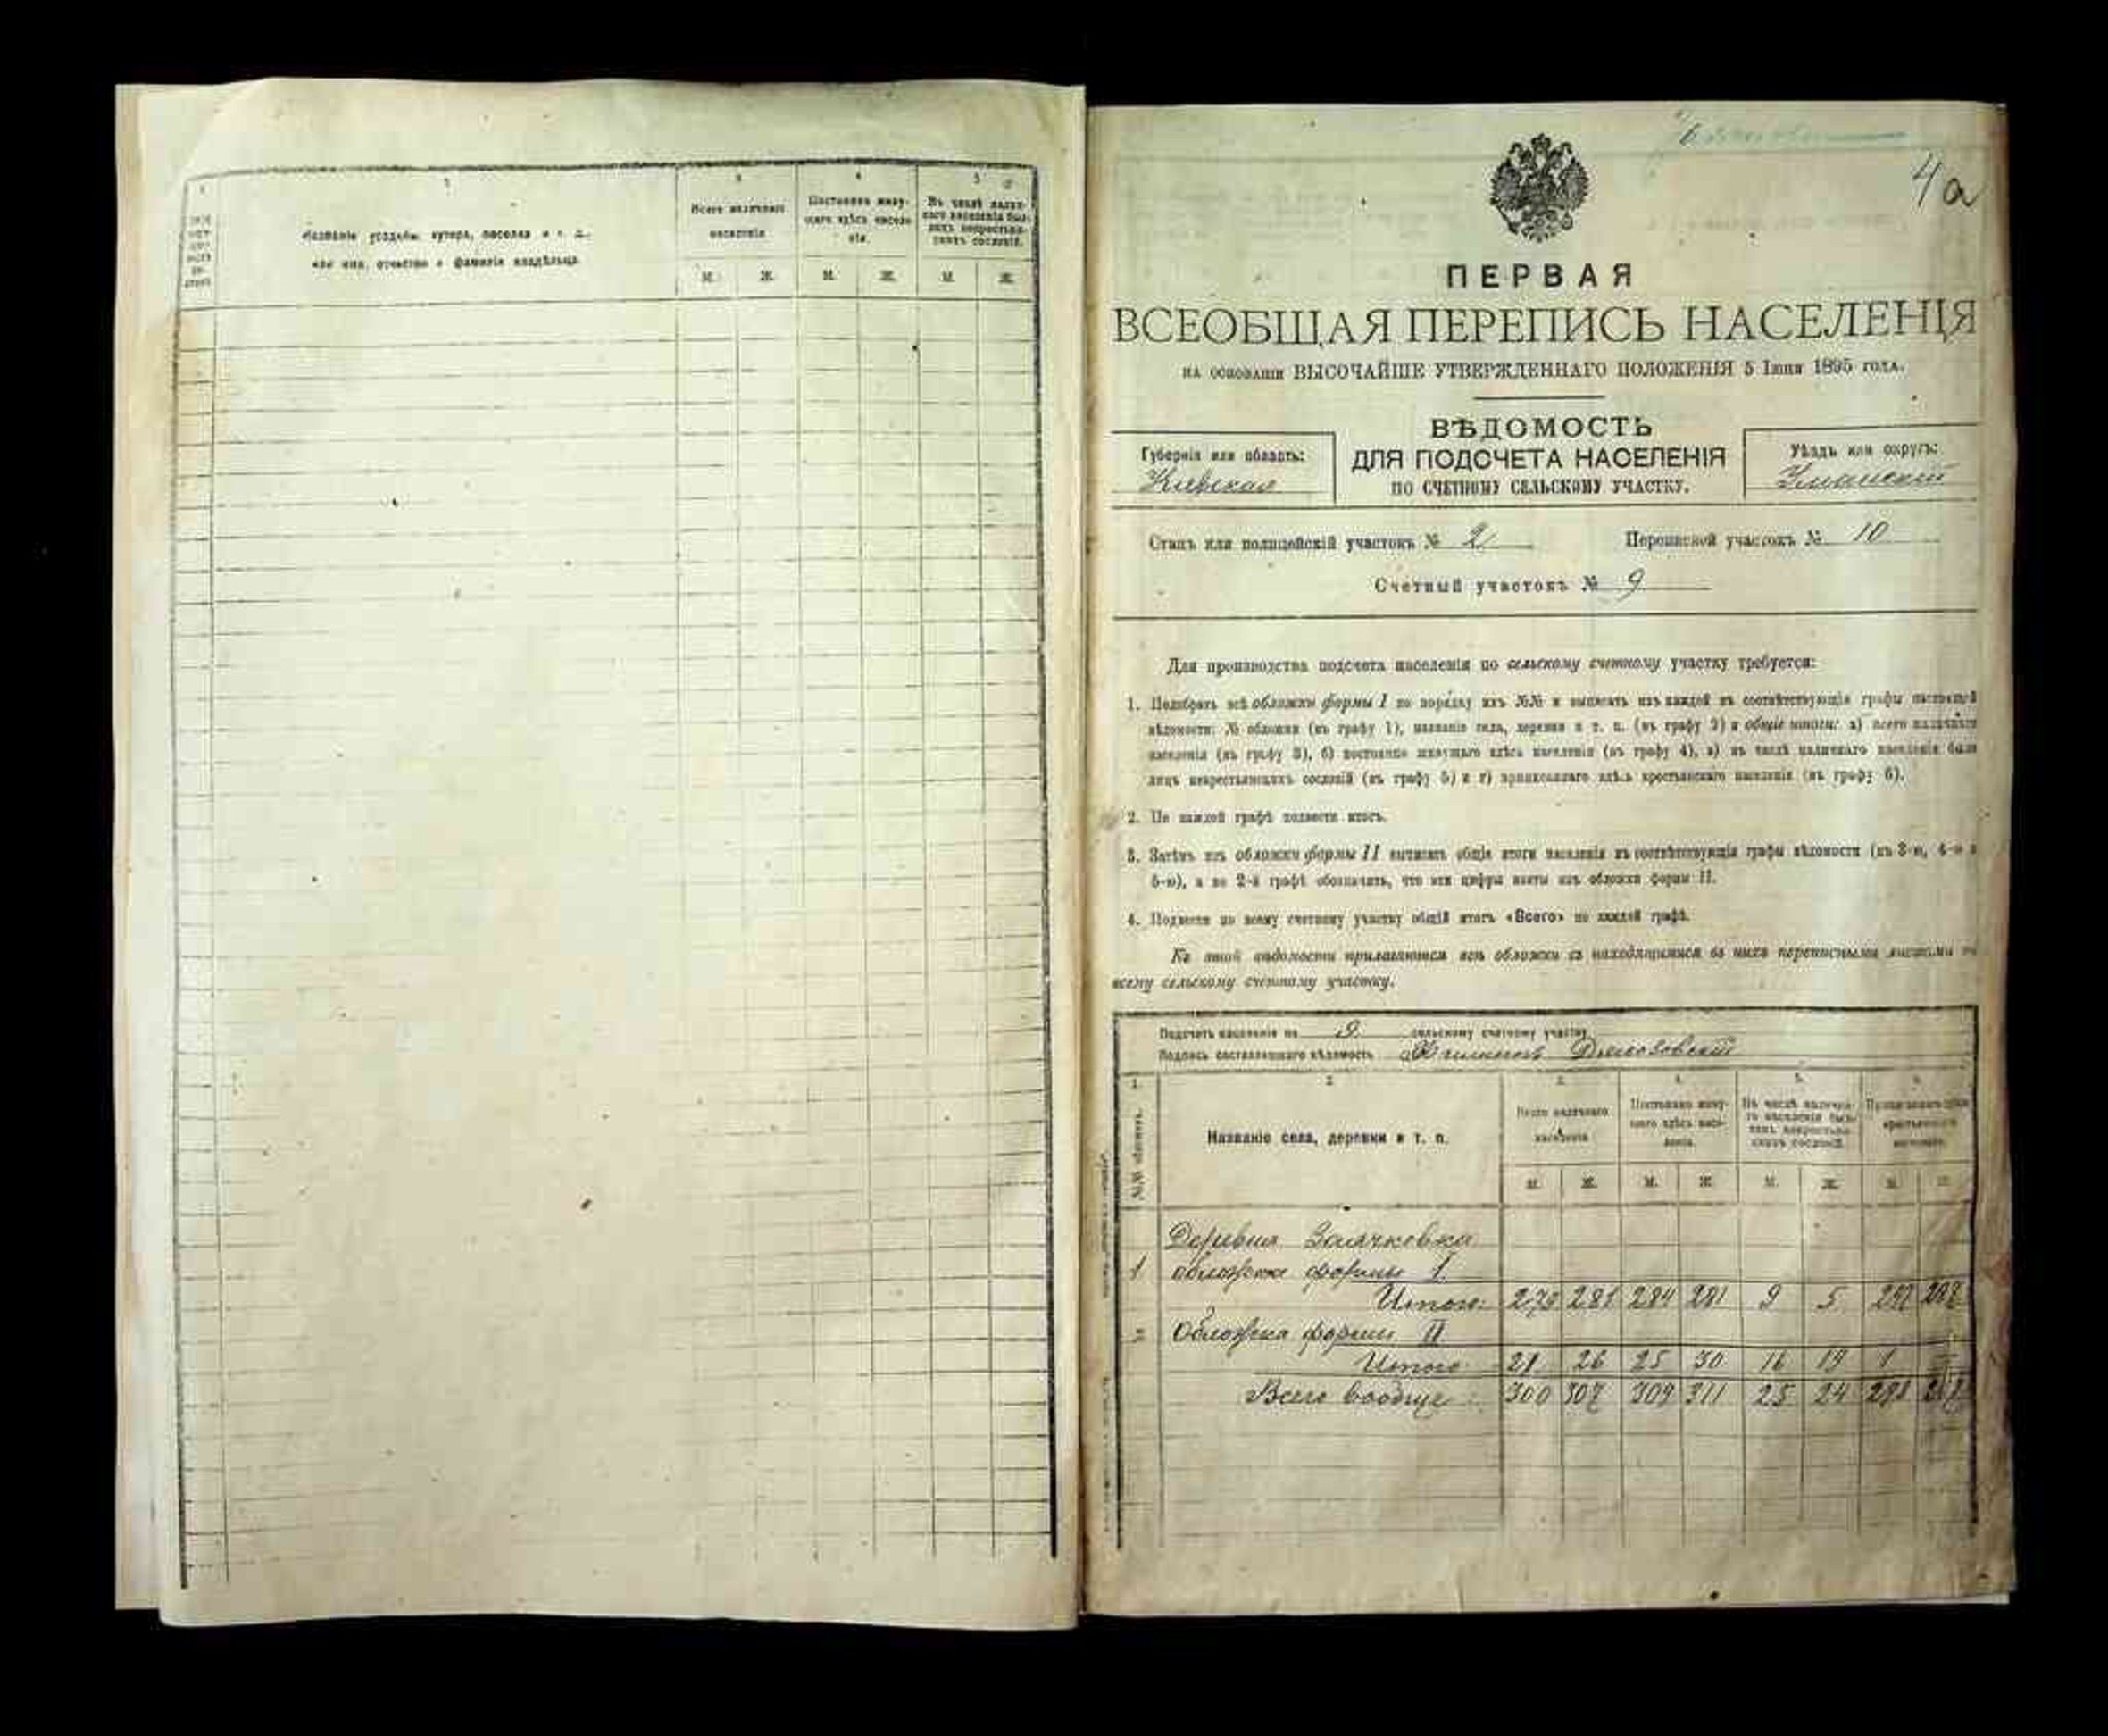 1
2
3
4
5
Названіе усадьбы, хутора, поселка и т. д.,
или имя, отчество и фамилія владѣльца.
Всего наличнаго
населенія
Постоянно живу-
щаго здѣсь населе-
нія.
Въ числѣ налич-
наго населенія бы-
лицъ некрестьян-
скихъ сословій.
М. Ж. М. Ж. М. Ж.
4а
ПЕРВАЯ
ВСЕОБЩАЯ ПЕРЕПИСЬ НАСЕЛЕНІЯ
НА ОСНОВАНІИ ВЫСОЧАЙШЕ УТВЕРЖДЕННАГО ПОЛОЖЕНІЯ 5 Іюня 1895 ГОДА.
ВѢДОМОСТЬ
ДЛЯ ПОДСЧЕТА НАСЕЛЕНІЯ
ПО СЧЕТНОМУ СЕЛЬСКОМУ УЧАСТКУ.
Губернія или область:
Кіевская
Уѣздъ или округъ:
Уманскій
Станъ или полицейскій участокъ № 2 Переписной участокъ № 10
Счетный участокъ № 9
Для производства подсчета населенія по сельскому счетному участку требуется:
1. Подобрать всѣ обложки формы I по порядку ихъ №№ и выписать изъ каждой въ соотвѣтствующія графы настоящей
вѣдомости: № обложки (въ графу 1), названіе села, деревни и т. п. (въ графу 2) и общіе итоги: а) всего наличнаго
населенія (въ графу 3), б) постоянно живущаго здѣсь населенія (въ графу 4), в) въ числѣ наличнаго населенія было
лицъ некрестьянскихъ сословій (въ графу 5) и г) приписаннаго здѣсь крестьянскаго населенія (въ графу 6).
2. По каждой графѣ подвести итогъ.
3. Затѣмъ изъ обложки формы II выписать общіе итоги населенія въ соотвѣтствующія графы вѣдомости (въ 3-ю, 4-ю и
5-ю), а во 2-й графѣ обозначить, что эти цифры взяты изъ обложки формы II.
4. Подвести по всему счетному участку общій итогъ «Всего» по каждой графѣ.
Къ этой вѣдомости прилагаются всѣ обложки съ находящимися въ нихъ переписными листами по
всему сельскому счетному участку.
Подсчетъ населенія по 9 сельскому счетному участку
Подпись составлявшаго вѣдомость
1. 2. 3. 4. 5. 6.
№№ обложекъ.
Названіе села, деревни и т. п.
Всего наличнаго
населенія
Постоянно живу-
щаго здѣсь насе-
ленія.
Въ числѣ налична-
го населенія бы-
лицъ некрестьян-
скихъ сословій.
Приписаннаго здѣсь
крестьянскаго
населенія.
М. Ж. М. Ж. М. Ж. М. Ж.
Деревня Заячковка
1 обложка формы I.
Итого: 279 281 284 281 9 5 297
2 Обложка формы II
Итого 21 26 25 30 16 19 1
Всего вообще: 300 307 309 311 25 24 298